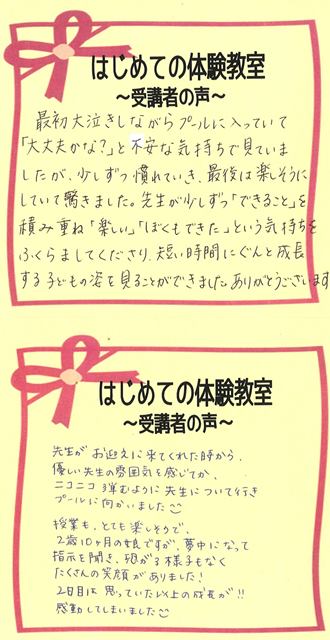 はじめての体験教室
～受講者の声～
最初大泣きしながらプールに入っていて
「大丈夫かな?」と不安な気持ちで見ていま
したが、少しずつ慣れていき、最後は楽しそうに
していて驚きました。先生が少しずつ「できること」を
積み重ね「楽しい」「ぼくもできた」という気持ちを
ふくらましてくださり、短い時間にぐんと成長
する子どもの姿を見ることができました。ありがとうございます
はじめての体験教室
～受講者の声～
先生が お迎えに来てくれた時から、
優しい先生の雰囲気を感じてか、
ニコニコ 弾むように先生について行き
プールに向かいました
授業も、とても楽しそうで、
2歳10ヶ月の娘ですが、夢中になって
指示を聞き、嫌がる様子もなく
たくさんの笑顔がありました!
2日目は 思っていた以上の成長が!!
感動してしまいました